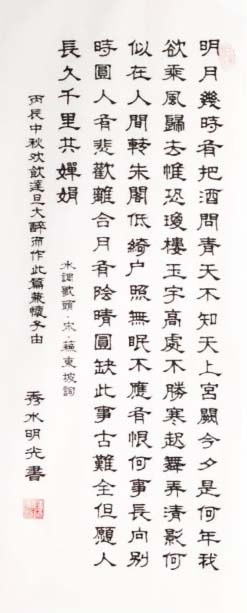 明月幾時有把酒問青天不知天上宮闕今夕是何年我
欲乘風歸去惟恐瓊樓玉宇高處不勝寒起舞弄清影何
似在人間轉朱閣低綺户照無眠不應有恨何事長向別
時圓人有悲歡離合月有陰晴圓缺此事古難全但願人
長久千里共嬋娟
水調歌頭·宋·蘇東坡詞
丙辰中秋欢飲達旦大醉而作此篇兼懷子由
秀水明光書